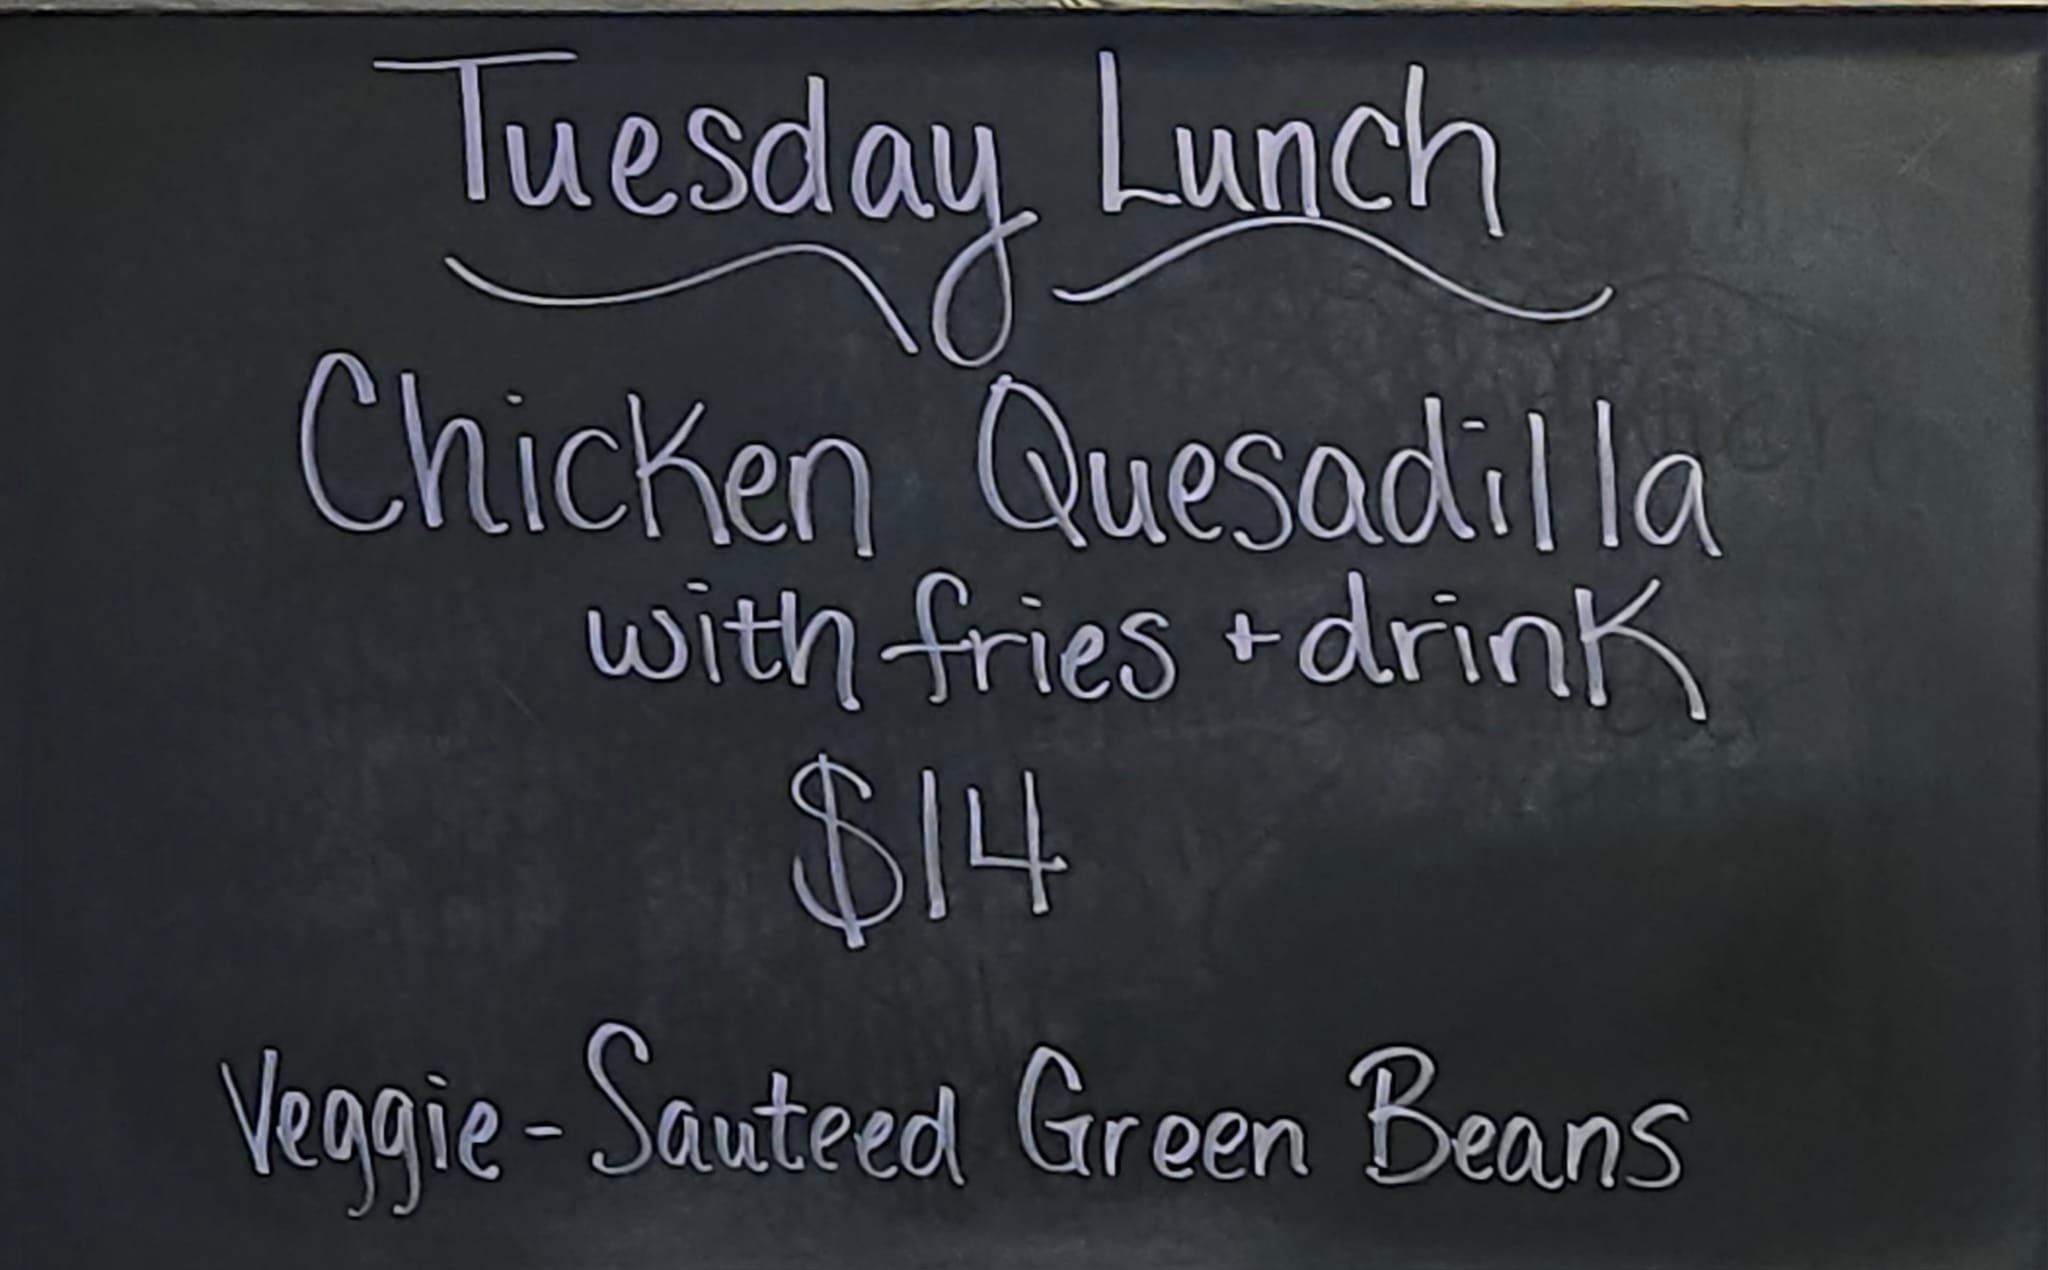 Tuesday Lunch
Chicken Quesadilla
with fries + drink
$14
Veggie - Sauteed Green Beans